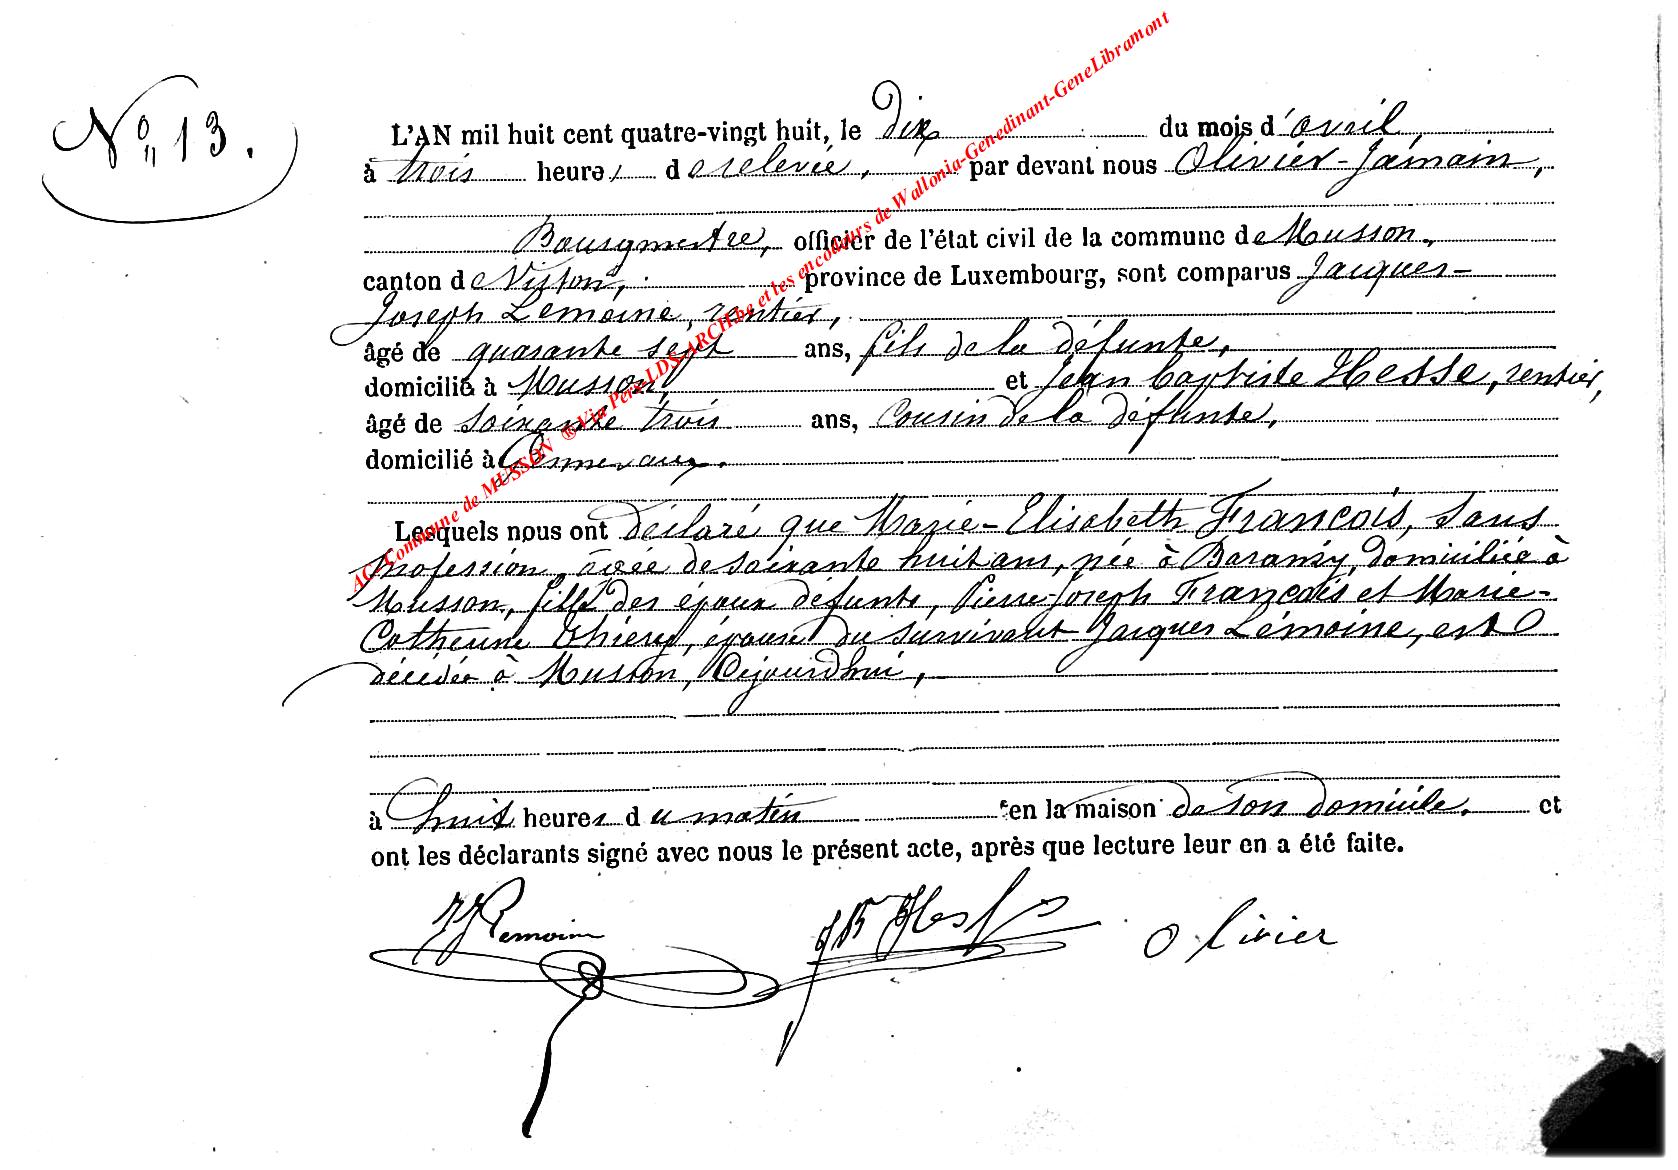 N° 13.
L'AN mil huit cent quatre-vingt huit, le dix du mois d'avril,
à trois heures de relevée, par devant nous Olivier-Jamain,
Bourgmestre, officier de l'état civil de la commune de Musson,
canton de Virton, province de Luxembourg, sont comparus Jacques-
Joseph Lemoine, rentier,
âgé de quarante sept ans, fils de la défunte,
domicilié à Musson, et Jean Baptiste Hesse, rentier,
âgé de soixante trois ans, cousin de la défunte,
domicilié à
Lesquels nous ont déclaré que Marie-Elisabeth François, sans
profession, âgée de soixante huit ans, née à Baranzy, domiciliée à
Musson, fille des époux défunts, Pierre-Joseph François et Marie-
Catherine Thiery, épouse du survivant Jacques Lémoine, est
décédée à Musson, Cejourd'hui,
à huit heures du matin en la maison de son domicile. et
ont les déclarants signé avec nous le présent acte, après que lecture leur en a été faite.
JJ Lemoine JB Hesse Olivier
AC-Commune de MUSSON ® Via Pers-LDS-ARCH.be et les encodeurs de Wallonia-Genedinant-GeneLibramont